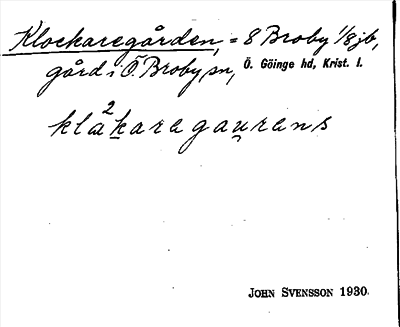 Klockaregården, = 8 Broby 1/8 jb,
gård i Ö. Broby sn, Ö. Göinge hd, Krist. l.
klå²karagaurens
JOHN SVENSSON 1930.